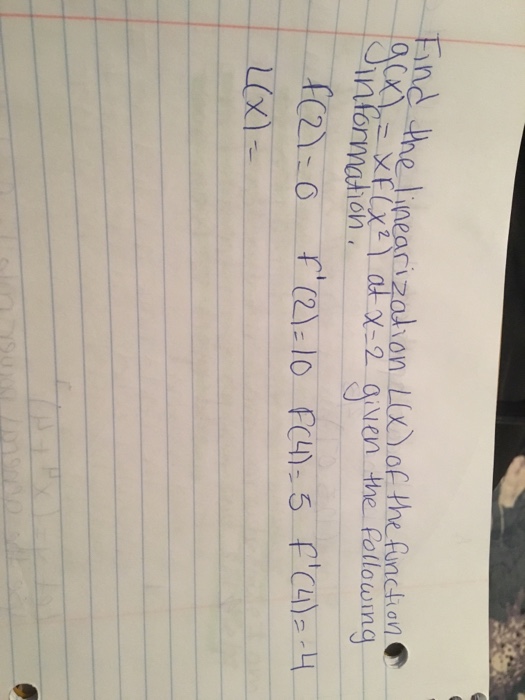 Find the linearization L(x) of the function
g(x) = xf(x²) at x=2 given the following
information.
f(2)=0 f'(2)=10 f(4)=5 f'(4)=-4
L(x)=